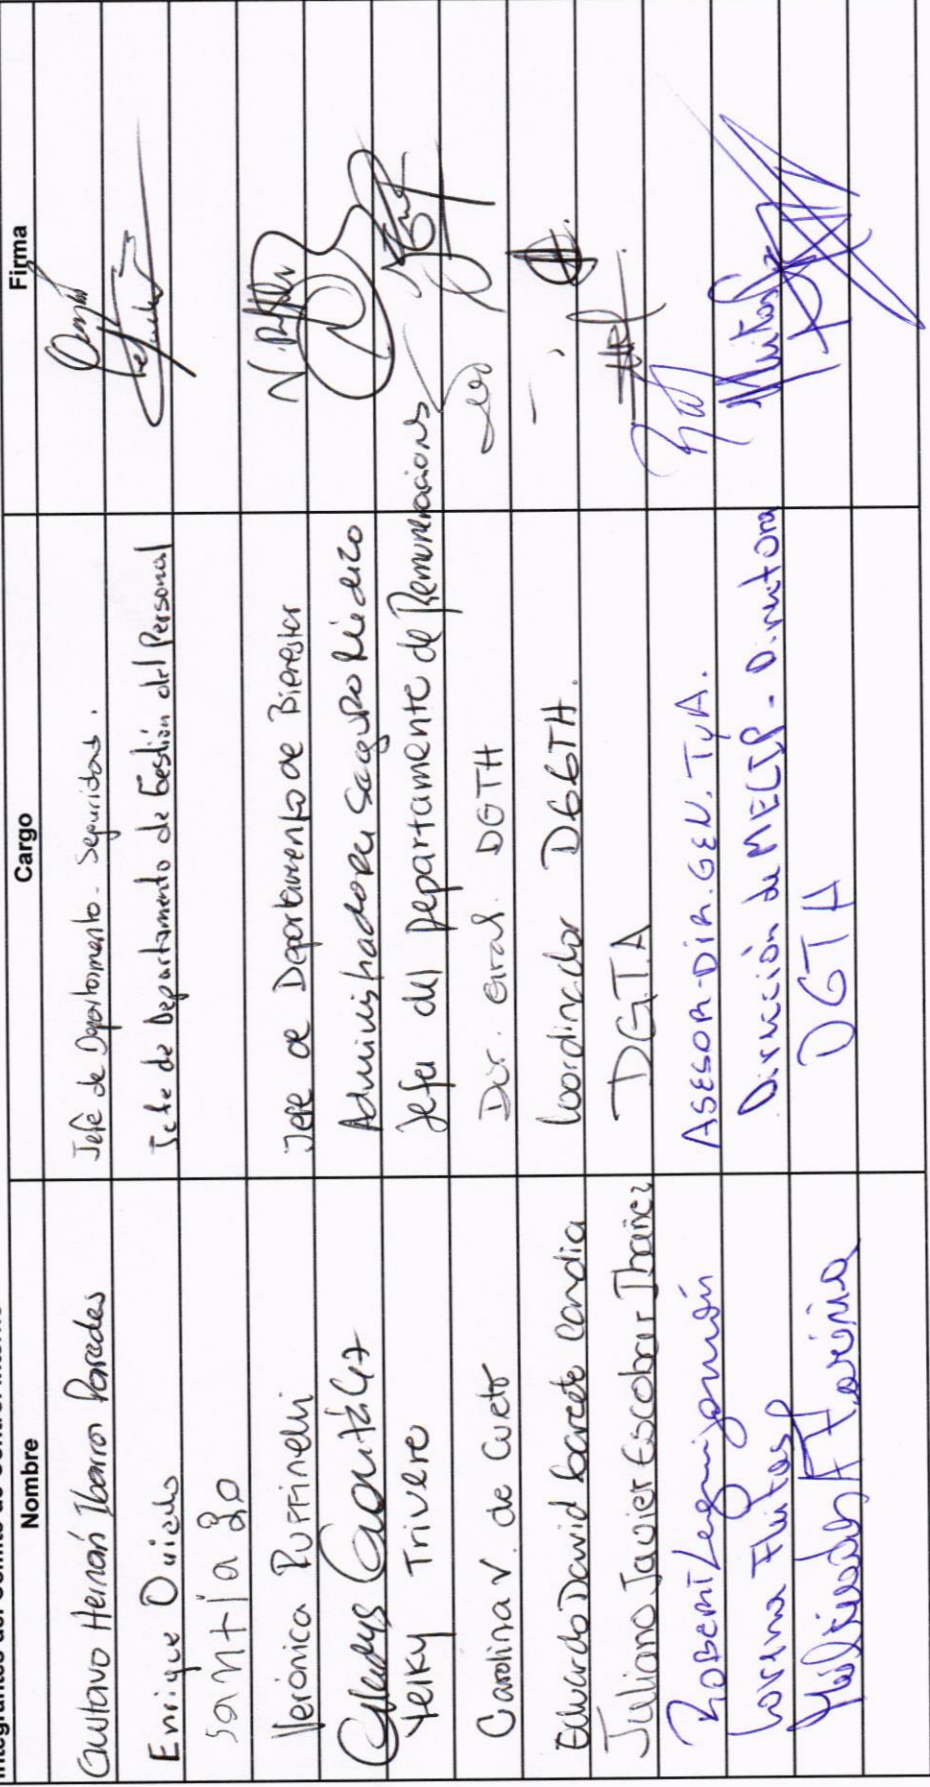 Integrantes del Comité de Control Interno
Nombre Cargo Firma
Gustavo Hernán Ibarra Paredes Jefe de Departamento - Seguridad.
Enrique Oviedo Jefe de Departamento de Gestión del Personal
Santiago
Verónica Ruffinelli Jefe de Departamento de Bienestar
Gladys González Administradora Seguro Médico
Yelky Trivero Jefa del Departamento de Remuneraciones
Carolina V. de Cueto Dir. Gral. DGTH
Eduardo David Barcete Candia Coordinador DGGTH.
Juliano Javier Escobar Ibañez DGTA
Robert Leguizamón ASESOR-DIR.GEN. TyA.
Lorena Fleitas Dirección de MECIP - Directora
DGTH